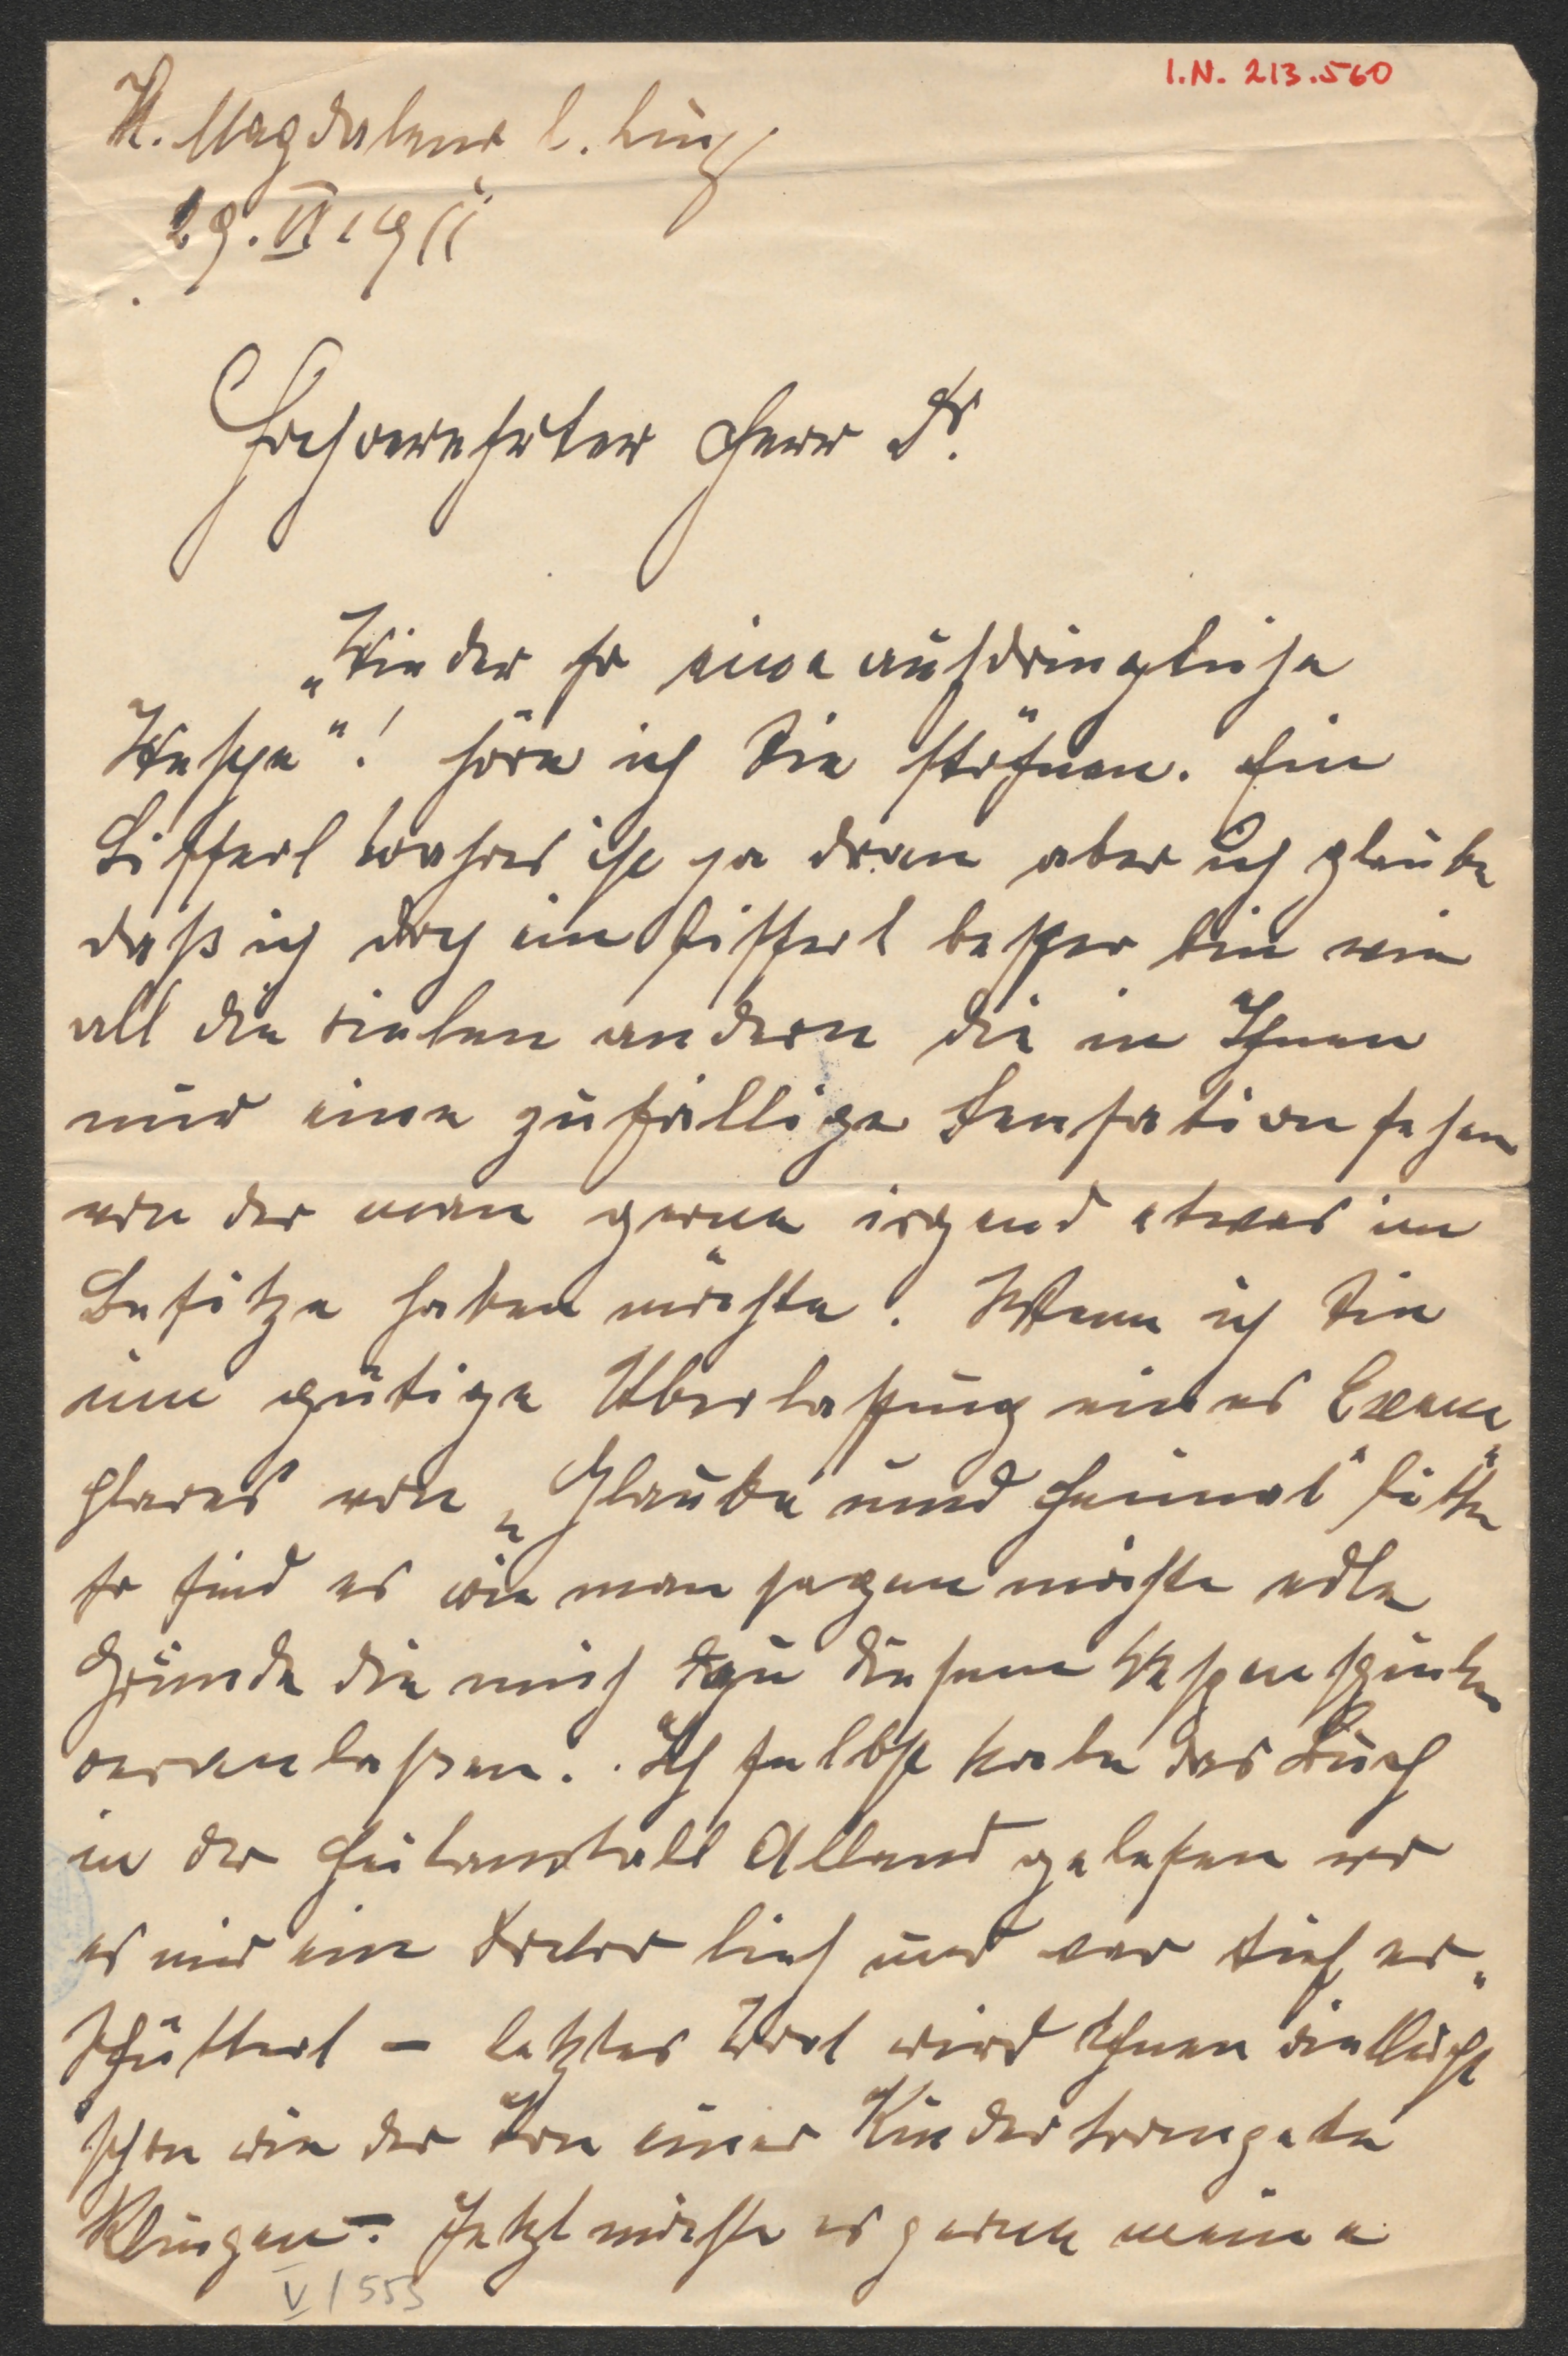 I.N. 213.560
St. Magdalena b. Linz
29. VI 1911
Hochverehrter Herr Dr.
„Wieder so eine aufdringliche
Wespe"! höre ich Sie stöhnen. Ein
Bisserl wahres ist ja dran aber ich glaube
daß ich doch ein bisserl besser bin wie
all die vielen andern die in Ihnen
nur eine zufällige Sensation sehen
von der man gerne irgend etwas im
Besitze haben möchte. Wenn ich Sie
um gütige Überlassung eines Exem„
plares von „Glaube und Heimat" bitte
so sind es wie man sagen möchte edle
Gründe die mich zu diesem
veranlaßen. Ich selbst habe das Buch
in der Heilanstalt Alland gelesen wo
es mir ein Doctor lieh und war tief er„
schüttert – letztes Wort wird Ihnen vielleicht
schon wie der Ton einer Kindertrompete
klingen –. Jetzt möchte es gerne meine
V/553